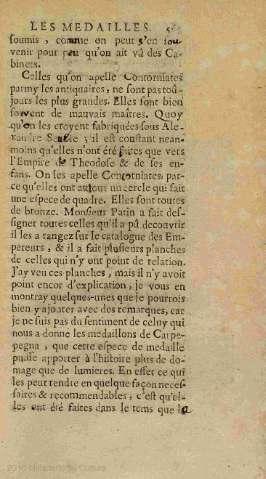 LES MEDAILLES.
soumis, comme on peut s'en sou-
venir pour peu qu'on ait vû des Ca-
binets.
Celles qu'on apelle Contorniates
parmy les antiquaires, ne sont pas toû-
jours les plus grandes. Elles sont bien
souvent de mauvais maîtres. Quoy
qu'on les croyent fabriquées sous Ale-
xandre Severe, il est constant nean-
moins qu'elles n'ont été faites que vers
l'Empire de Theodose & de ses en-
fans. On les apelle Contorniates, par-
ce qu'elles ont autour un cercle qui fait
une espece de quadre. Elles sont toutes
de bronze. Monsieur Patin a fait des-
signer toutes celles qu'il a pû decouvrir
il les a rangez sur le catalogue des Em-
pereurs, & il a fait plusieurs planches
de celles qui n'y ont point de relation.
J'ay veu ces planches, mais il n'y avoit
point encor d'explication, je vous en
montray quelques-unes que je pourrois
bien y ajoûter avec des remarques, car
je ne suis pas du sentiment de celuy qui
nous a donne les medaillons de Carpe-
pegna, que cette espece de medaille
puisse apporter à l'histoire plus de do-
mage que de lumieres. En effet ce qui
les peut rendre en quelque façon neces-
saires & recommendables, c'est qu'el-
les ont été faites dans le tems que la